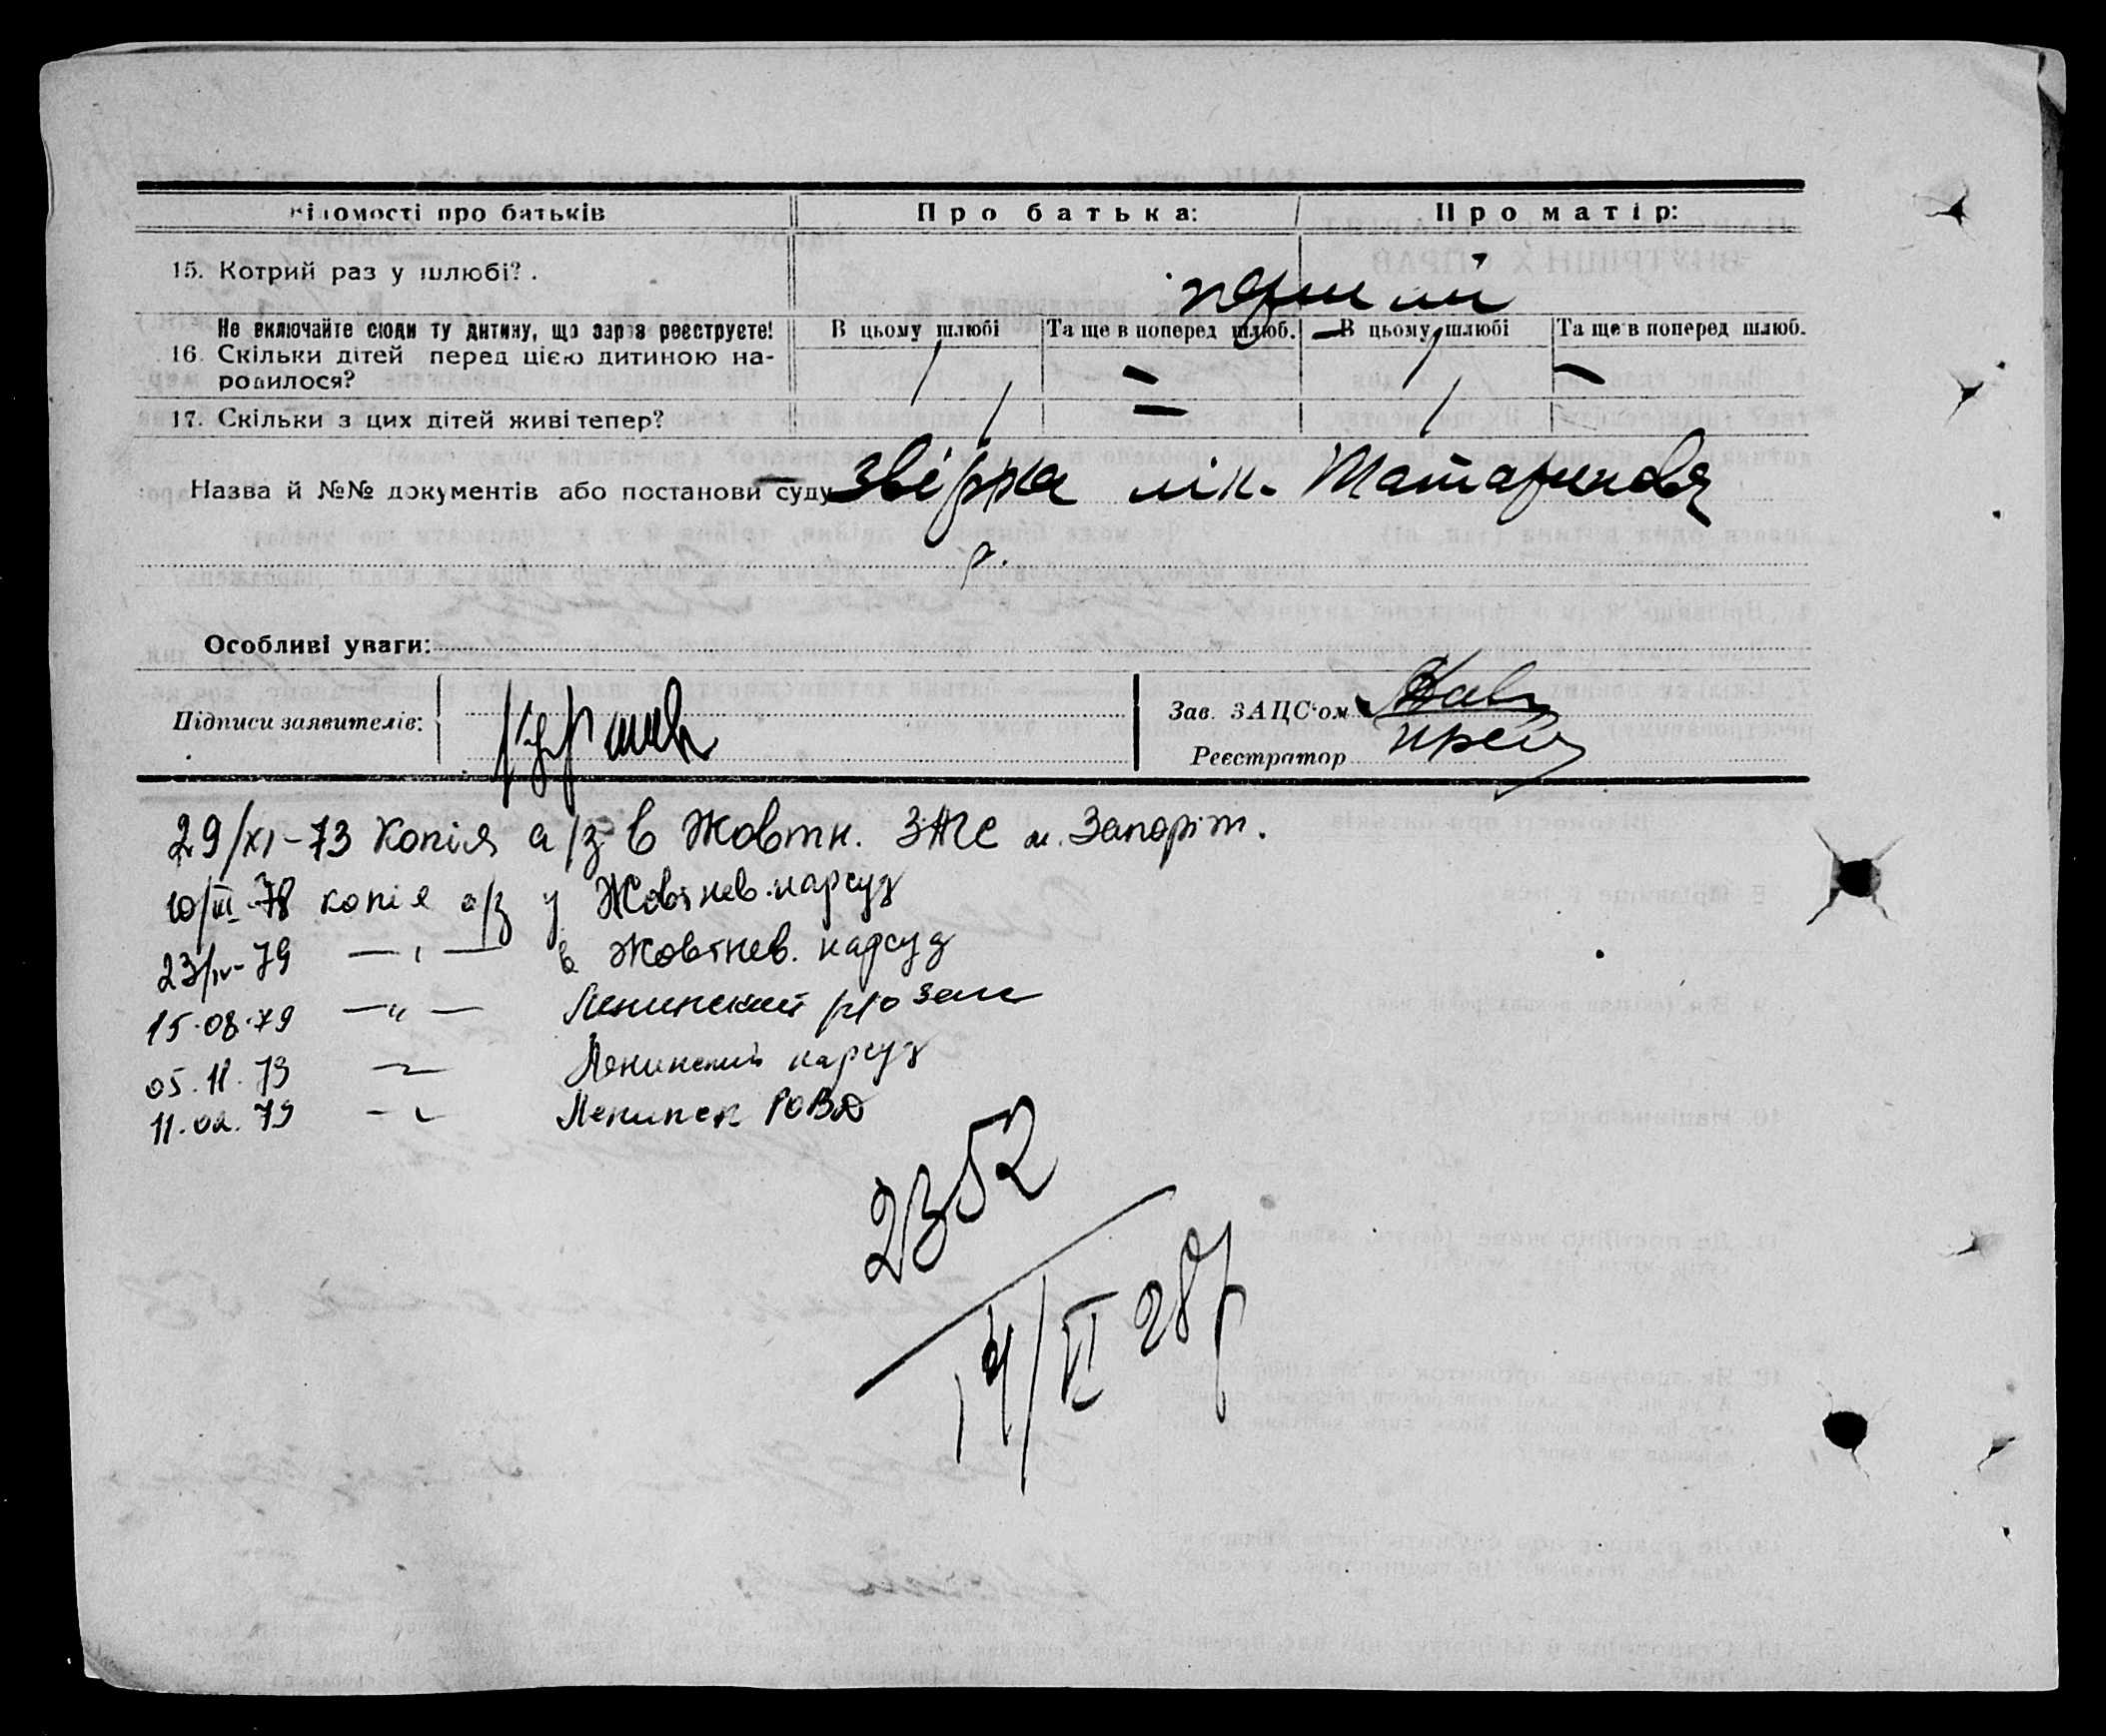 Відомості про батьків Про батька: Про матір:
15. Котрий раз у шлюбі? . перший
Не включайте сюди ту дитину, що зараз реєструєте! В цьому шлюбі Та ще в поперед шлюб. В цьому шлюбі Та ще в поперед шлюб.
16. Скільки дітей перед цією дитиною на-
родилося? 1 — 1 —
17. Скільки з цих дітей живі тепер? 1 — 1
Назва й №№ документів або постанови суду звірка лік.
р.
Особливі уваги:
Підписи заявителів:
Зав. ЗАЦС'ом
Реєстратор
29/XI-73 Копія а/з в Жовтн. ЗАГС м. Запоріж.
10/III-78 копія а/з у Жовтнев. нарсуд
23/IV-79 — " — в Жовтнев. нарсуд
15.08.79 — " — Ленинский р/о загс
05.11.79 — " — Ленинский нарсуд
11.02.79 — " — Ленинск РОВД
2352
14/VI 28р